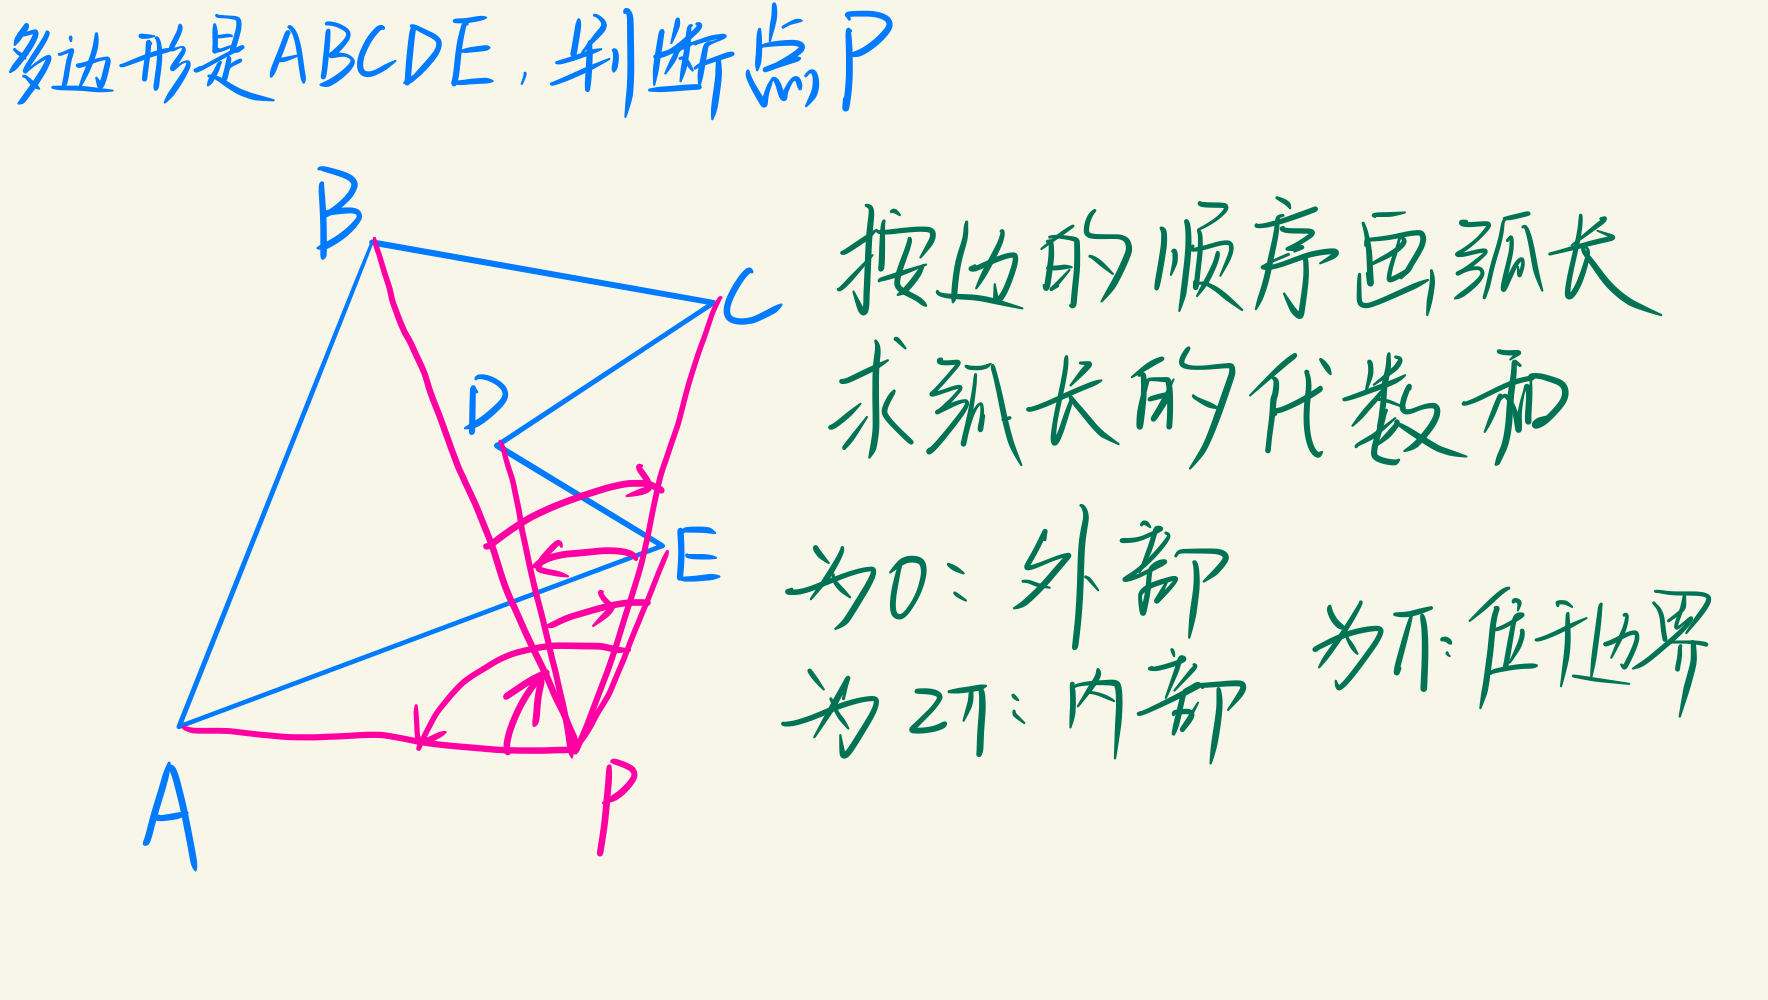 多边形是ABCDE,判断点P
B
C
D
E
A
P
按边的顺序画弧长
求弧长的代数和
为0:外部
为π:位于边界
为2π:内部